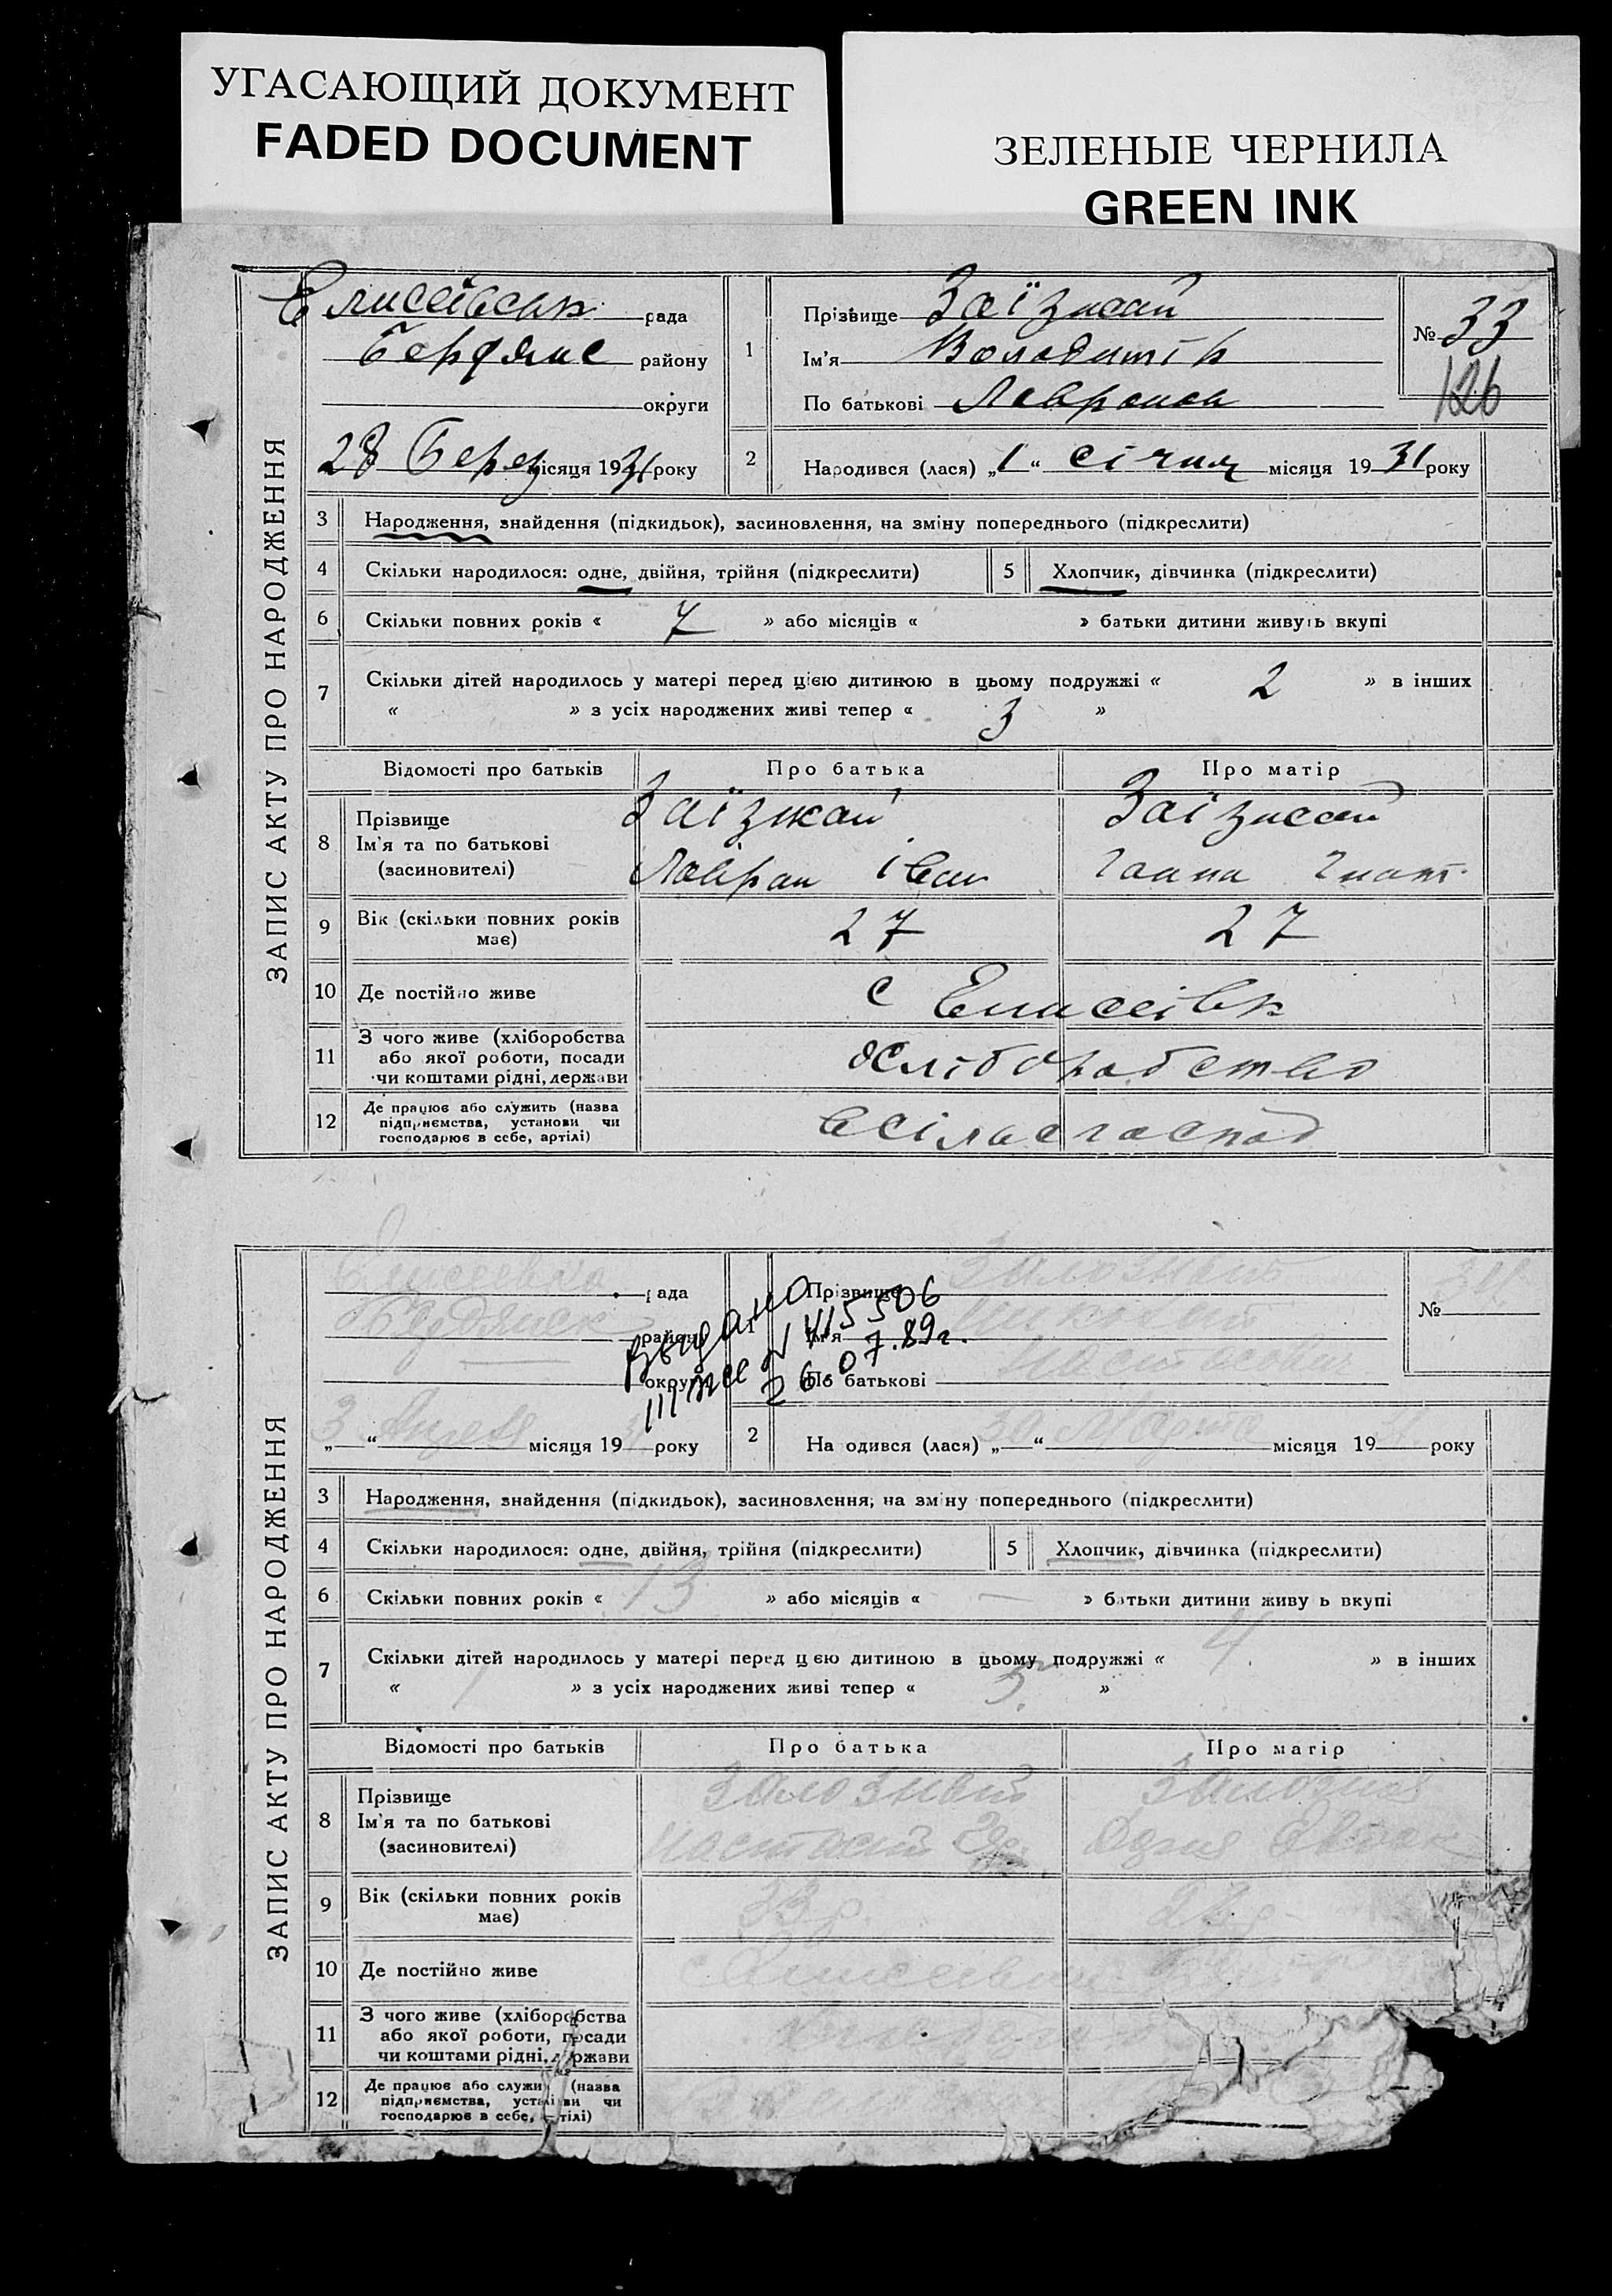 УГАСАЮЩИЙ ДОКУМЕНТ
FADED DOCUMENT
ЗЕЛЕНЫЕ ЧЕРНИЛА
GREEN INK
ЗАПИС АКТУ ПРО НАРОДЖЕННЯ
Єлисеївськ рада
Бердянс району
округи
28 Берез місяця 1931 року
1
Прізвище Заїзжай
Ім'я Володимір
По батькові Лавронов
№ 33
126
2 Народився (лася) „1“ січня місяця 1931 року
3 Народження, знайдення (підкидьок), засиновлення, на зміну попереднього (підкреслити)
4 Скільки народилося: одне, двійня, трійня (підкреслити) 5 Хлопчик, дівчинка (підкреслити)
6 Скільки повних років « 7 » або місяців « » батьки дитини живуть вкупі
7 Скільки дітей народилось у матері перед цією дитиною в цьому подружжі « 2 » в інших
« » з усіх народжених живі тепер « 3 »
Відомості про батьків Про батька Про матір
8 Прізвище Заїзжай Заїзжай
Ім'я та по батькові Лаврон Іван Ганна Гнат.
(засиновителі)
9 Вік (скільки повних років має) 27 27
10 Де постійно живе с Єлисеівк
11 З чого живе (хліборобства
або якої роботи, посади
чи коштами рідні, держави
хліборобство
12 Де працює або служить (назва
підприємства, установи чи
господарює в себе, артілі)
в сільс господ
ЗАПИС АКТУ ПРО НАРОДЖЕННЯ
Елисеевка рада
Бердянск району
округи
Выдано
III же № 415506
26.07.89г.
„3“ Апреля місяця 19 року
1
Прізвище Залозный
Ім'я
По батькові
№
2 Народився (лася) „30“ Марта місяця 19 року
3 Народження, знайдення (підкидьок), засиновлення, на зміну попереднього (підкреслити)
4 Скільки народилося: одне, двійня, трійня (підкреслити) 5 Хлопчик, дівчинка (підкреслити)
6 Скільки повних років « 13 » або місяців « — » батьки дитини живуть вкупі
7 Скільки дітей народилось у матері перед цією дитиною в цьому подружжі « 4 » в інших
« » з усіх народжених живі тепер « 5 »
Відомості про батьків Про батька Про матір
8 Прізвище Залозный Залозная
Ім'я та по батькові
(засиновителі)
9 Вік (скільки повних років має) 33
10 Де постійно живе с Елисеевка
11 З чого живе (хліборобства
або якої роботи, посади
чи коштами рідні, держави
12 Де працює або служить (назва
підприємства, установи чи
господарює в себе, артілі)